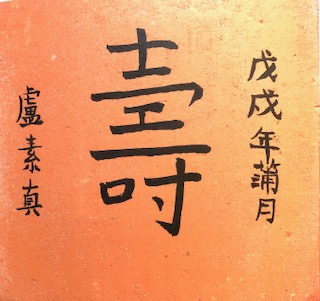 戊戌年蒲月
壽
盧素真